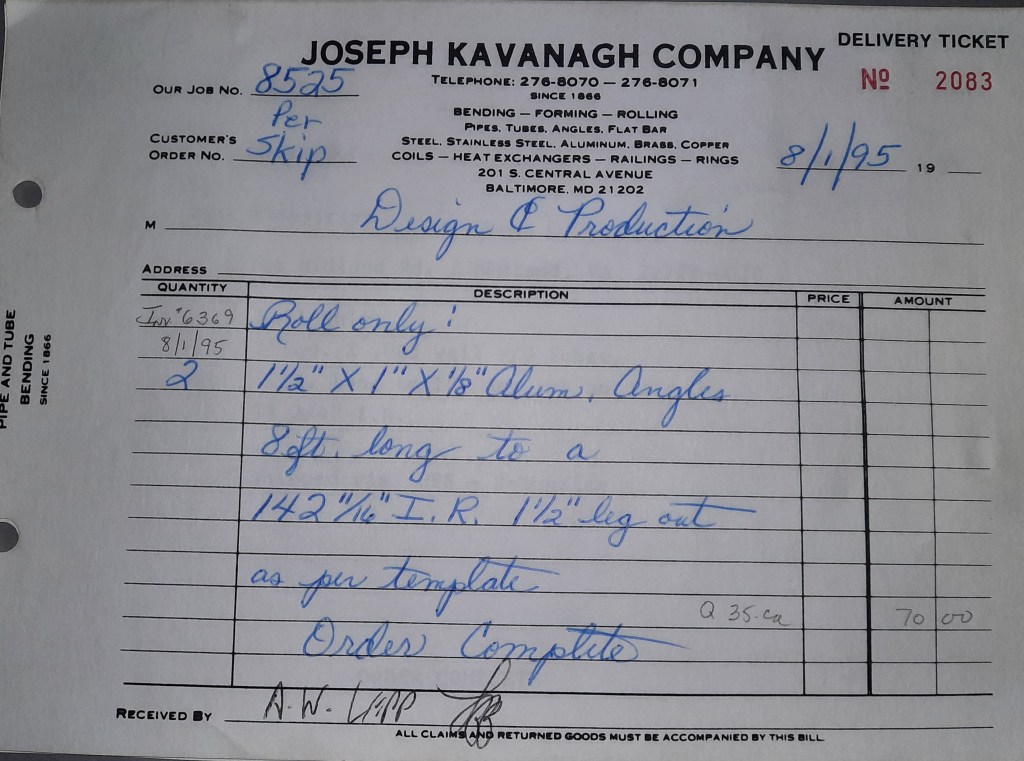 DELIVERY TICKET
JOSEPH KAVANAGH COMPANY
Nº 2083
OUR JOB No. 8525
TELEPHONE: 276-8070 — 276-8071
SINCE 1866
BENDING — FORMING — ROLLING
PIPES, TUBES, ANGLES, FLAT BAR
STEEL, STAINLESS STEEL, ALUMINUM, BRASS, COPPER
COILS — HEAT EXCHANGERS — RAILINGS — RINGS
201 S. CENTRAL AVENUE
BALTIMORE, MD 21202
Per
CUSTOMER'S
ORDER NO. Skip
8/1/95 19
M Design & Production
ADDRESS
QUANTITY DESCRIPTION PRICE AMOUNT
Inv. #6369 Roll only:
8/1/95
2 1 1/2" X 1" X 1/8" Alum. Angles
8ft. long to a
142 11/16" I.R. 1 1/2" leg out
as per template
@ 35. ea 70 00
Order Complete
RECEIVED BY A.W. LAPP
ALL CLAIMS AND RETURNED GOODS MUST BE ACCOMPANIED BY THIS BILL
PIPE AND TUBE
BENDING
SINCE 1866